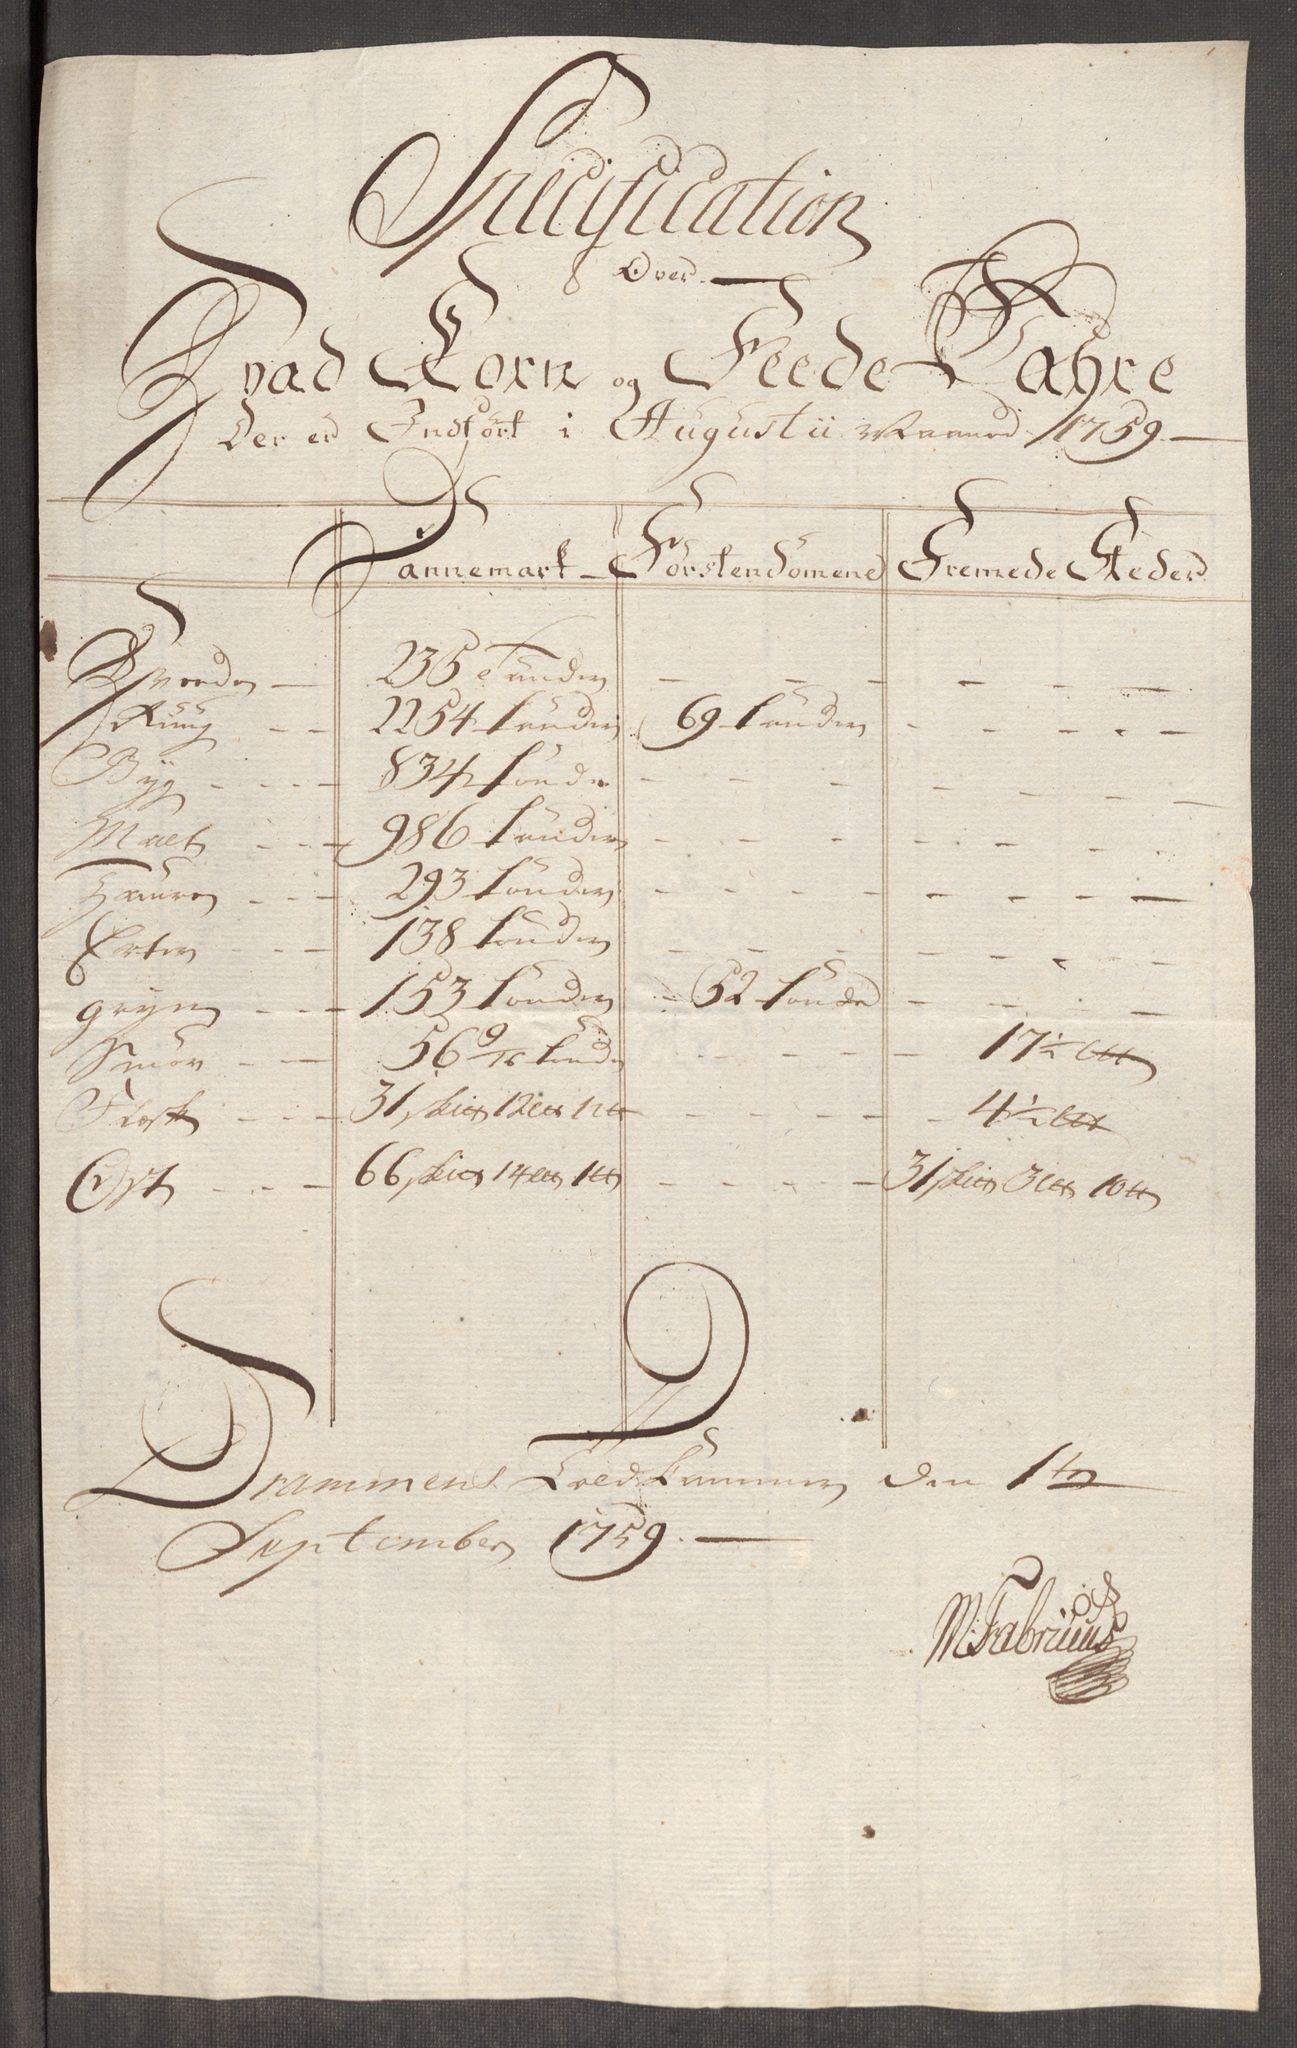 Specification
Over
Hvad Korn og Feede Vahre
Der er Indført i Augustii Maaned 1759
Dannemark Førstendømene Fremede Steder
Hveeden 235 Tønder
Rüug 2254 tønder 69 tønder
Byg 834 tønder
Malt 986 tønder
Haure 293 tønder
Erter 138 tønder
gryn 153 tønder 52 tønder
Smør 56 9/16 tønde 17½ L℔
Flesk 31 skl℔ 12 L℔ 1 ℔ 4½ L℔
Ost 66 skl℔ 14 L℔ 1 ℔ 31 skl℔ 3 L℔ 10 ℔
Drammens Told Kammer den 1te
September 1759
M Fabricius